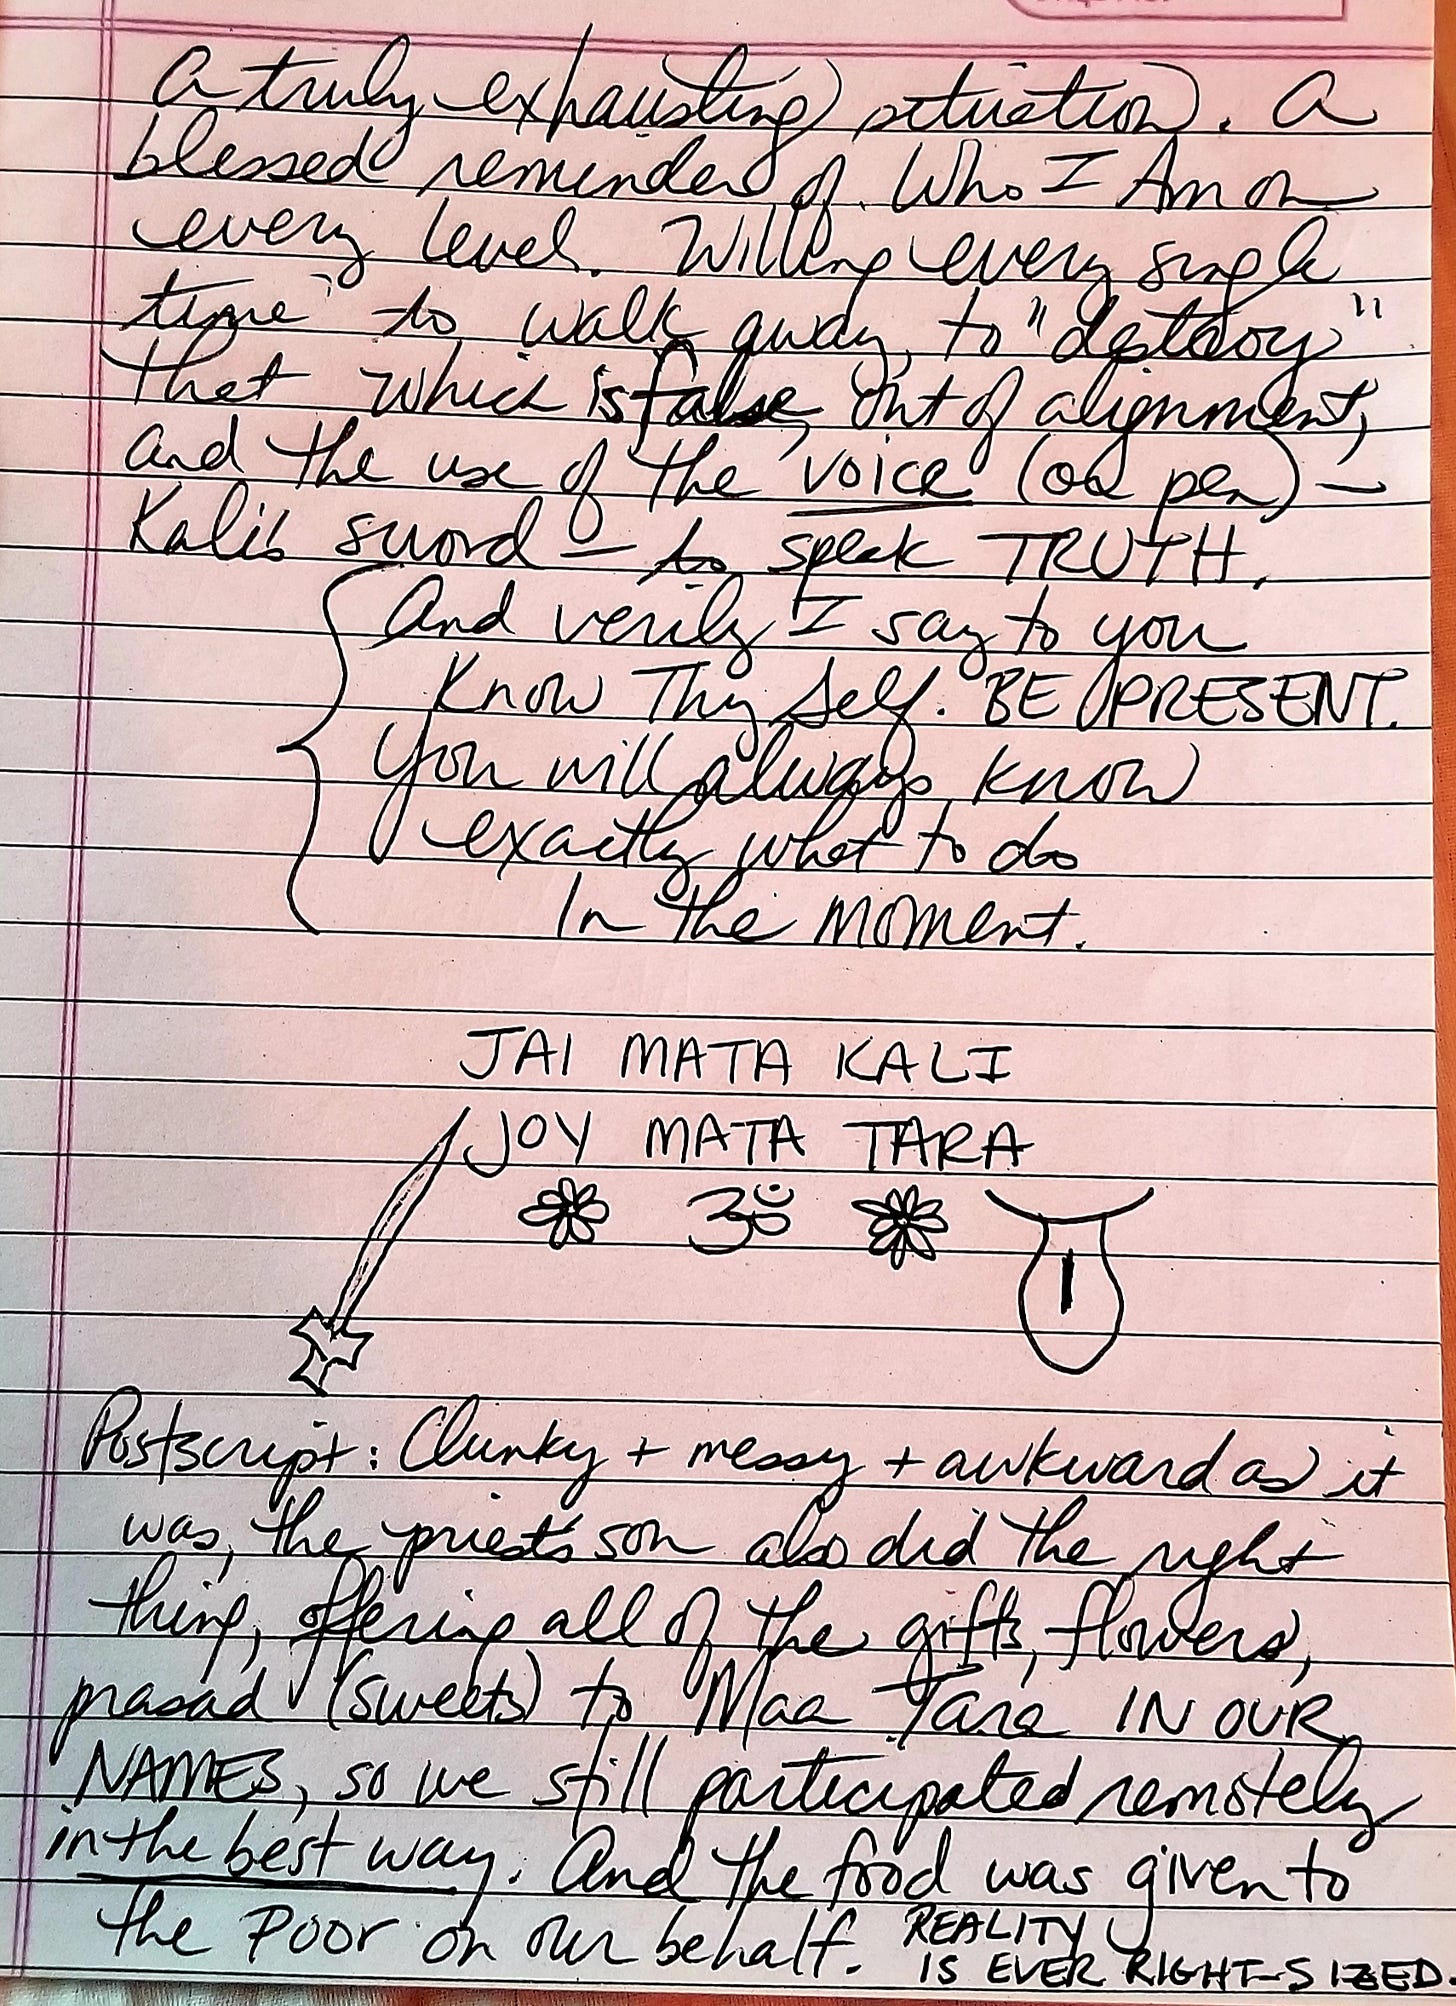 a truly exhausting situation. A
blessed reminder of Who I Am on
every level. Willing every single
time to walk away, to "destroy"
that which is false, out of alignment,
and the use of the voice (or pen) –
Kali's sword – to speak TRUTH.
And verily I say to you
Know Thy Self. BE PRESENT.
You will always know
exactly what to do
In the MOMENT.
JAI MATA KALI
JOY MATA TARA
ॐ
Postscript: Clunky + messy + awkward as it
was, the priest's son also did the right
thing, offering all of the gifts, flowers,
prasad (sweets) to Maa Tara IN OUR
NAMES, so we still participated remotely
in the best way. And the food was given to
the POOR on our behalf. REALITY
IS EVER RIGHT-SIZED.